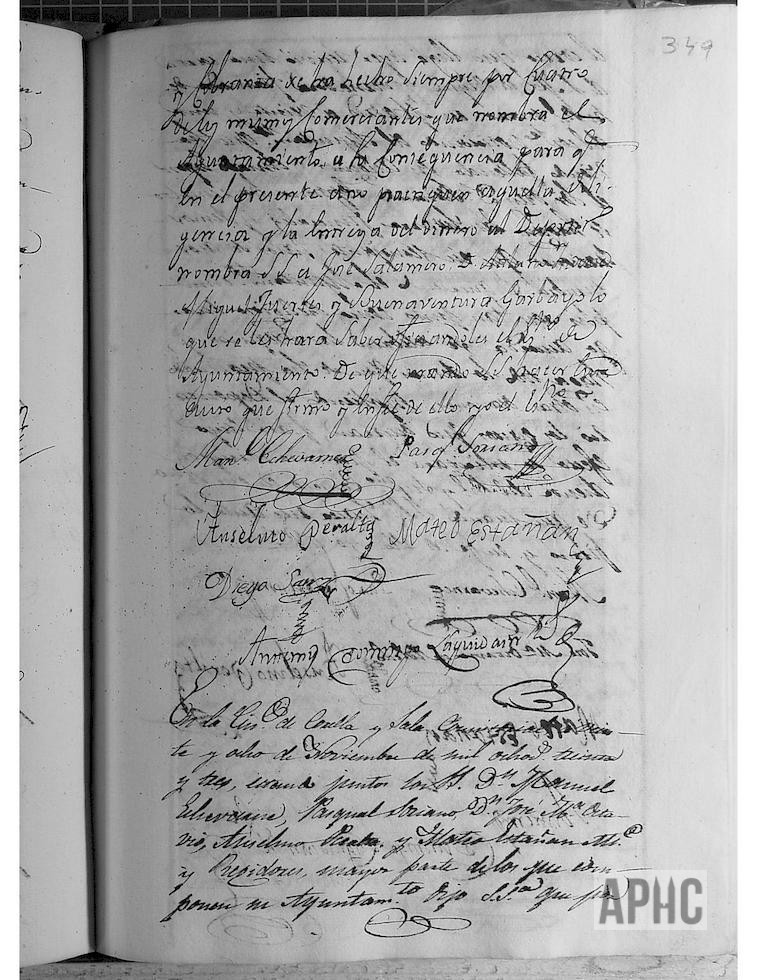 349
y Cobranza se ha hecho siempre por Cuatro
de los mismos Comerciantes que nombra el
Ayuntamiento, a la Consequencia para q.e
en el presente año practiquen aquella dili-
gencia y la entrega del dinero al Depositº
nombra S.S. a José Salamero, D.
Miguel Fuertes y Buenaventura Garbayo lo
que se les hara saber el Srio de
Ayuntamiento. De que mando S.S. hacer
Auto que firmo y de ello yo el Srio
Man.l Echevarria Pasq.l Soriano
Anselmo Peralta Mateo Estañan
Diego Sanz
Antonio Domingo Laguidain
En la Ciu.d de Corella y Sala vein-
te y ocho de Noviembre de mil ochoc.s treinta
y tres, estando juntos los SS. D.n Manuel
Echevarria, Pasqual Soriano, D.n José M.a Octa-
vio, Anselmo Peralta y Mateo Estañan Al.e
y Regidores, mayor parte de los que com-
ponen su Ayuntam.to Dijo S.S.a que por
APHC